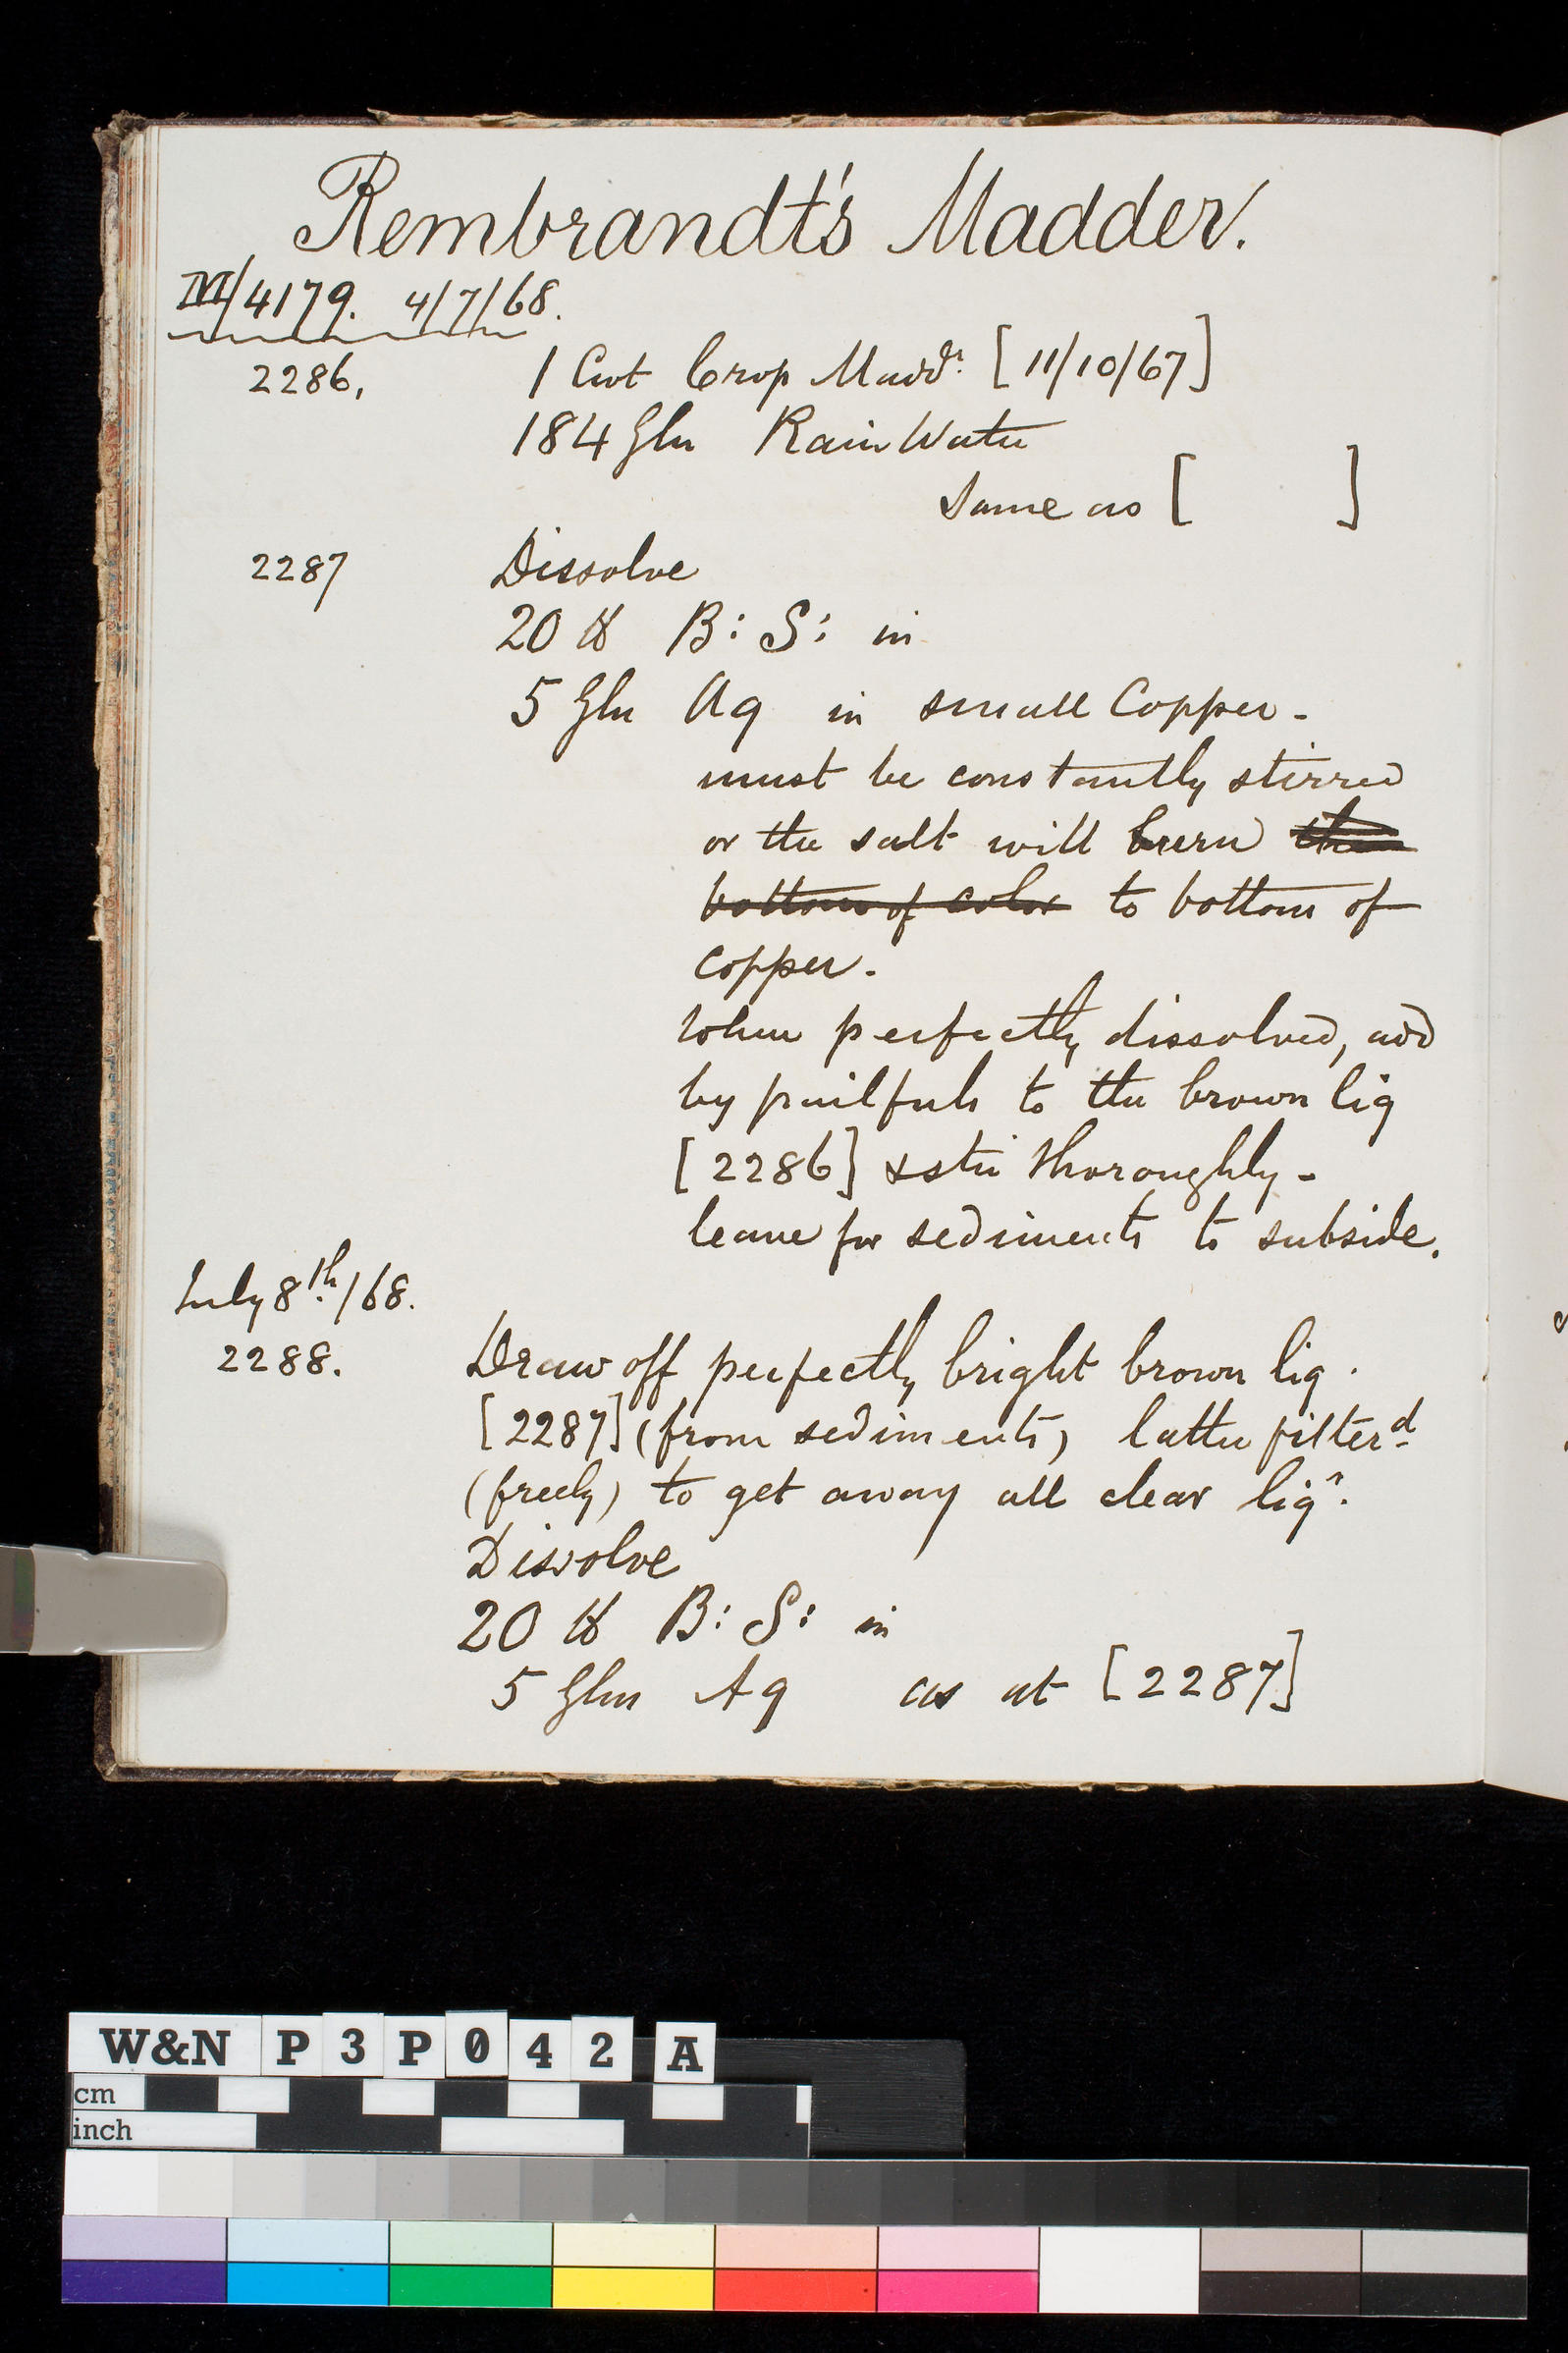 Rembrandt's Madder.
IVI/4179. 4/7/68.
2286, 1 Cwt Crop Madd.r [11/10/67]
184 Gln Rain Water
Same as [ ]
2287 Dissolve
20 lb B: S: in
5 Gln Aq in small Copper -
must be constantly stirred
or the salt will burn the
bottom of color to bottom of
copper.
When perfectly dissolved, add
by pailfuls to the brown liq
[2286] & stir thoroughly -
leave for sediments to subside.
July 8th/68.
2288. Draw off perfectly bright brown liq.
[2287] (from sediments) latter filterd
(freely) to get away all clear liqr.
Dissolve
20 lb B: S: in
5 Gln Aq as at [2287]
W&N P3P042 A
cm
inch